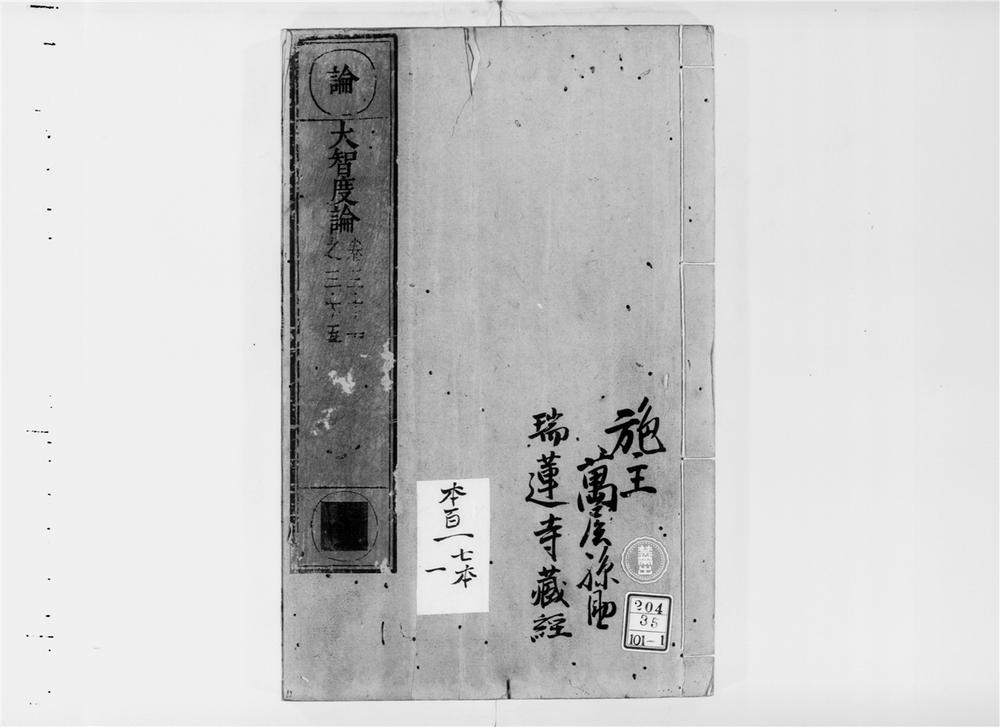 施主
萬屋孫助
瑞蓮寺藏經
禁帶出
204
35
101-1
本百一七本
一
論
大智度論
卷三十四
之三十五